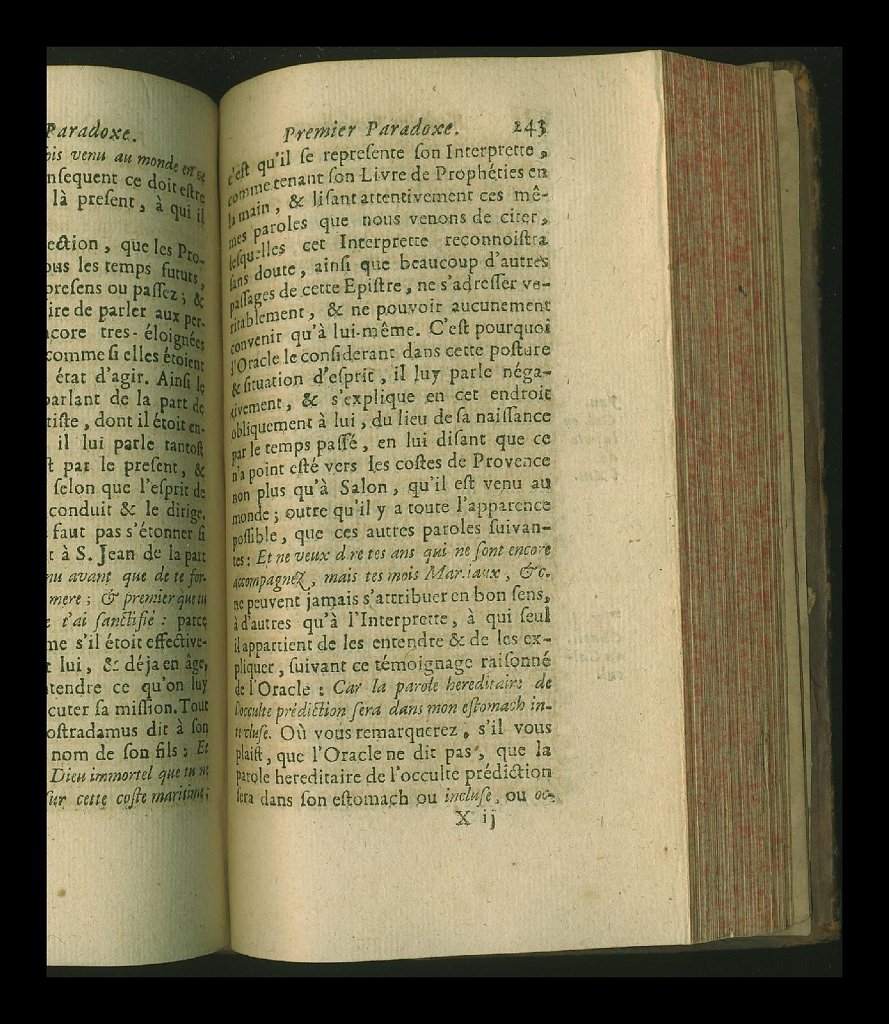 Paradoxe.
ois venu au monde est de
nsequent ce doit estre
là present, à qui il
ection, que les Pro-
ous les temps futurs,
presens ou passez; &
ire de parler aux per-
ncore tres-éloignées
comme si elles étoient
état d'agir. Ainsi le
parlant de la part de
tiste, dont il étoit en-
il lui parle tantost
t par le present, &
selon que l'esprit de
conduit & le dirige.
faut pas s'étonner si
t à S. Jean de la part
nu avant que de te for-
mere; & premier que tu
e t'ai sanctifié: parce
me s'il étoit effective-
t lui, & déja en âge,
tendre ce qu'on luy
cuter sa mission. Tout
ostradamus dit à son
nom de son fils: Et
Dieu immortel que tu ne
sur cette coste maritime;
Premier Paradoxe. 243
c'est qu'il se represente son Interprette,
comme tenant son Livre de Prophéties en
la main, & lisant attentivement ces mê-
mes paroles que nous venons de citer,
lesquelles cet Interprette reconnoistra
sans doute, ainsi que beaucoup d'autres
passages de cette Epistre, ne s'adresser ve-
ritablement, & ne pouvoir aucunement
convenir qu'à lui-même. C'est pourquoi
l'Oracle le considerant dans cette posture
& situation d'esprit, il luy parle néga-
tivement, & s'explique en cet endroit
obliquement à lui, du lieu de sa naissance
par le temps passé, en lui disant que ce
n'a point esté vers les costes de Provence
non plus qu'à Salon, qu'il est venu au
monde; outre qu'il y a toute l'apparence
possible, que ces autres paroles suivan-
tes: Et ne veux dire tes ans qui ne sont encore
accompagnez, mais tes mois Martiaux, &c.
ne peuvent jamais s'attribuer en bon sens,
à d'autres qu'à l'Interprette, à qui seul
il appartient de les entendre & de les ex-
pliquer, suivant ce témoignage raisonné
de l'Oracle: Car la parole hereditaire de
l'occulte prédiction sera dans mon estomach in-
tercluse. Où vous remarquerez, s'il vous
plaist, que l'Oracle ne dit pas, que la
parole hereditaire de l'occulte prédiction
sera dans son estomach ou incluse, ou oc-
X ij